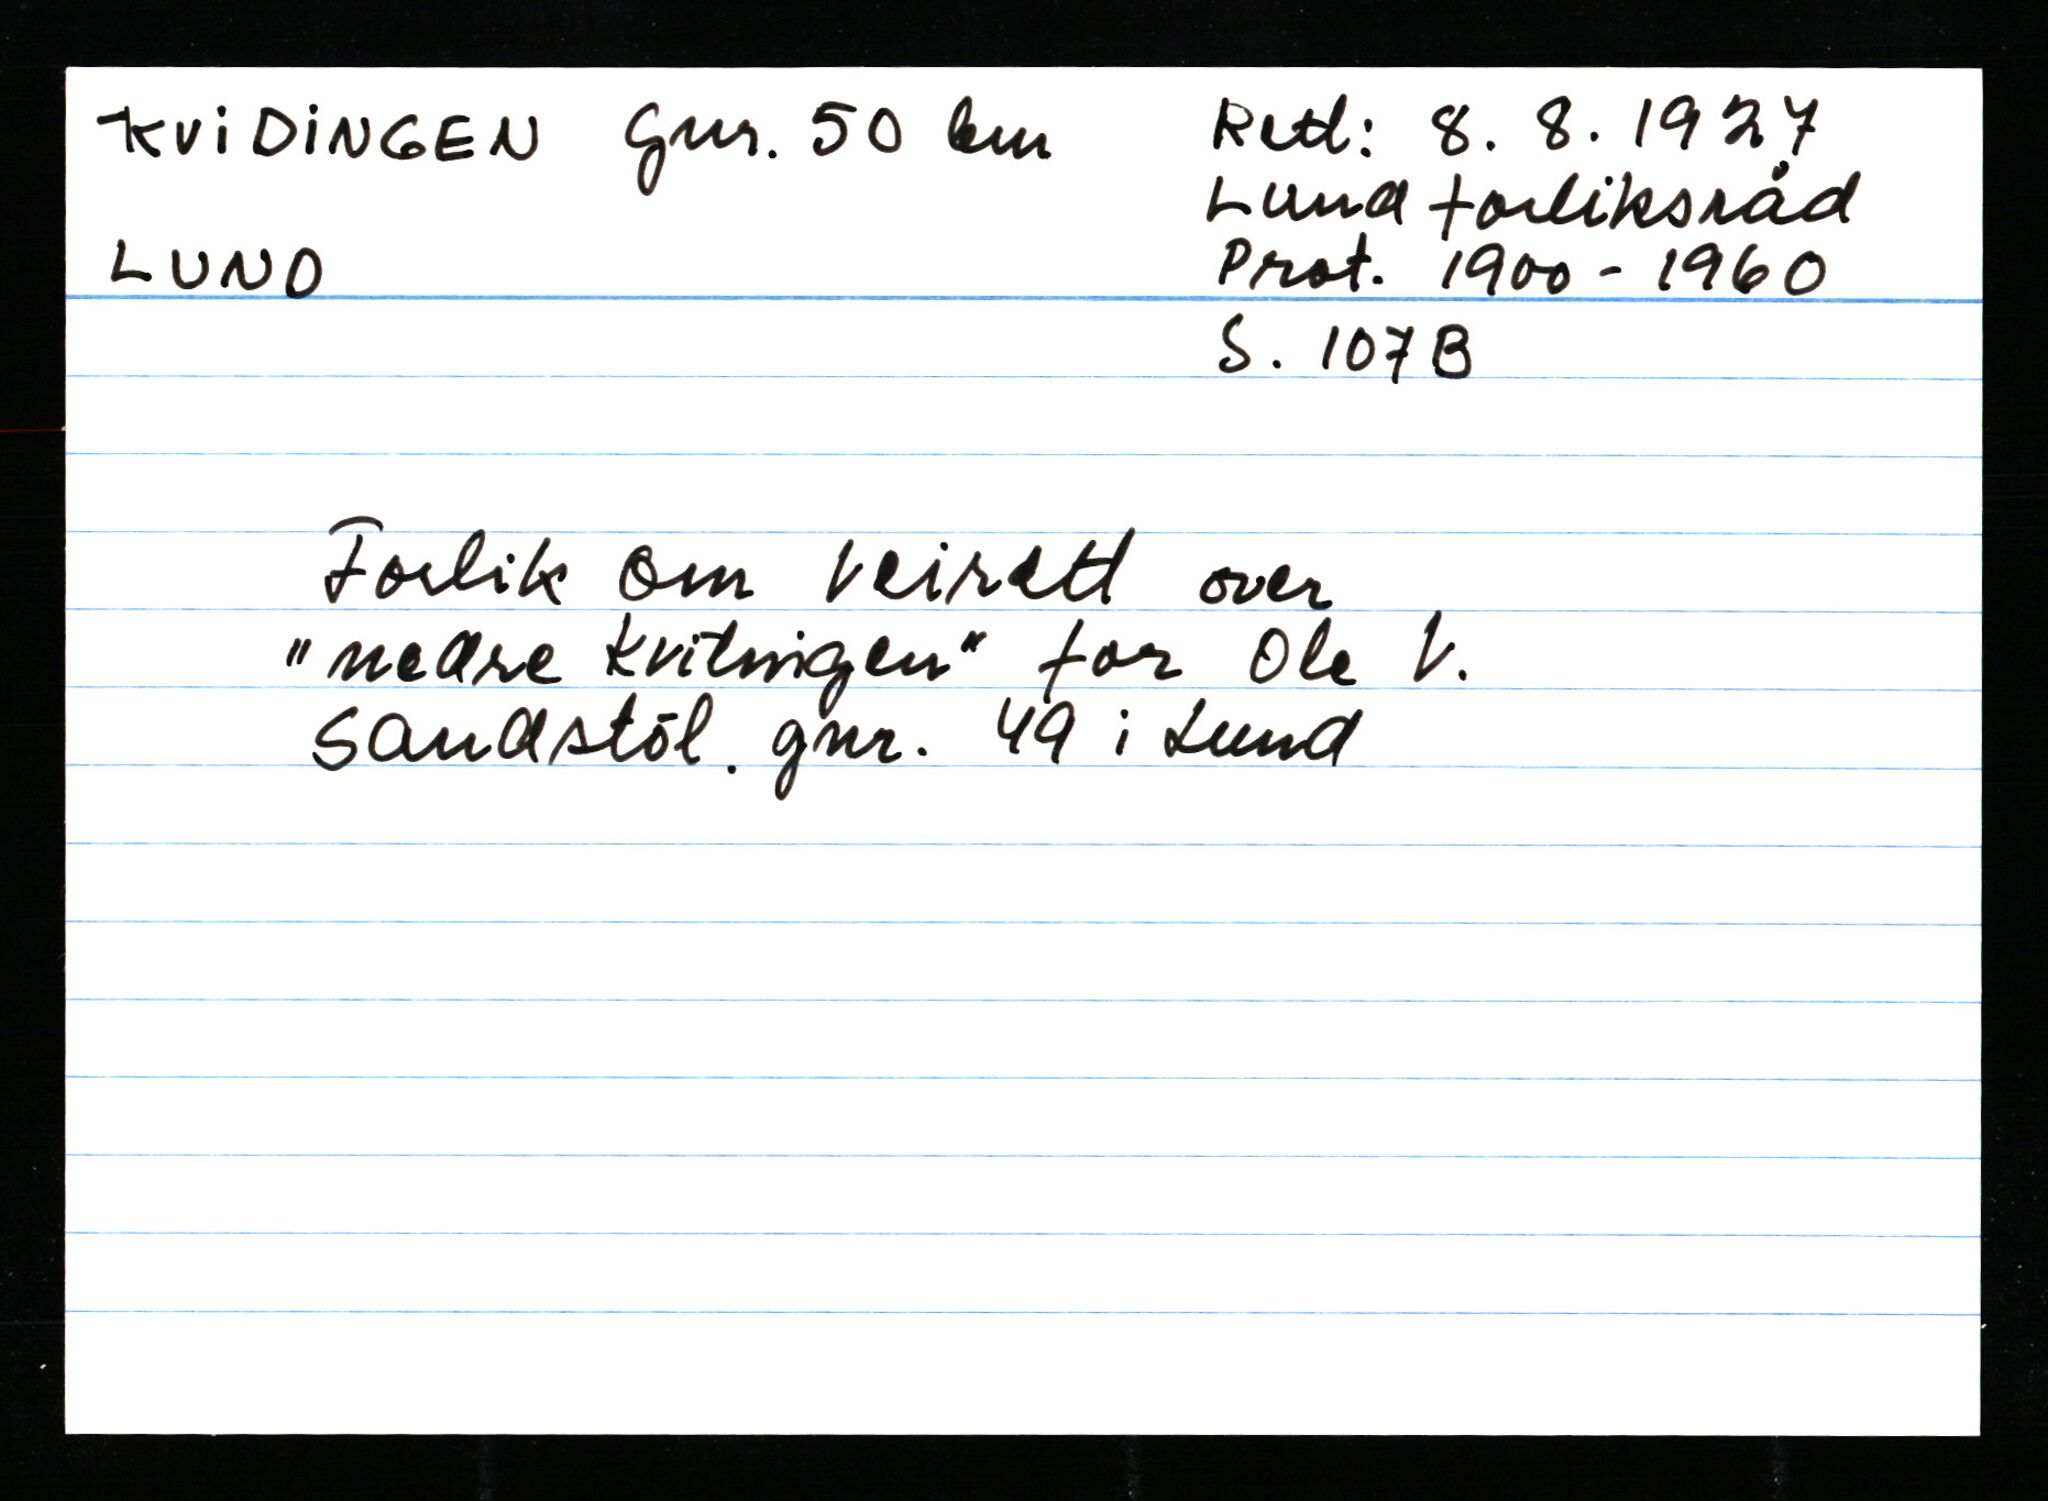 KViDiNGEN Gnr. 50 km
LUND
Retl: 8. 8. 1927
Lund forliksråd
Prot. 1900 - 1960
S. 107B
Forlik om veirett over
"nedre Kvitingen" for Ole V.
Sandstöl. gnr. 49 i Lund